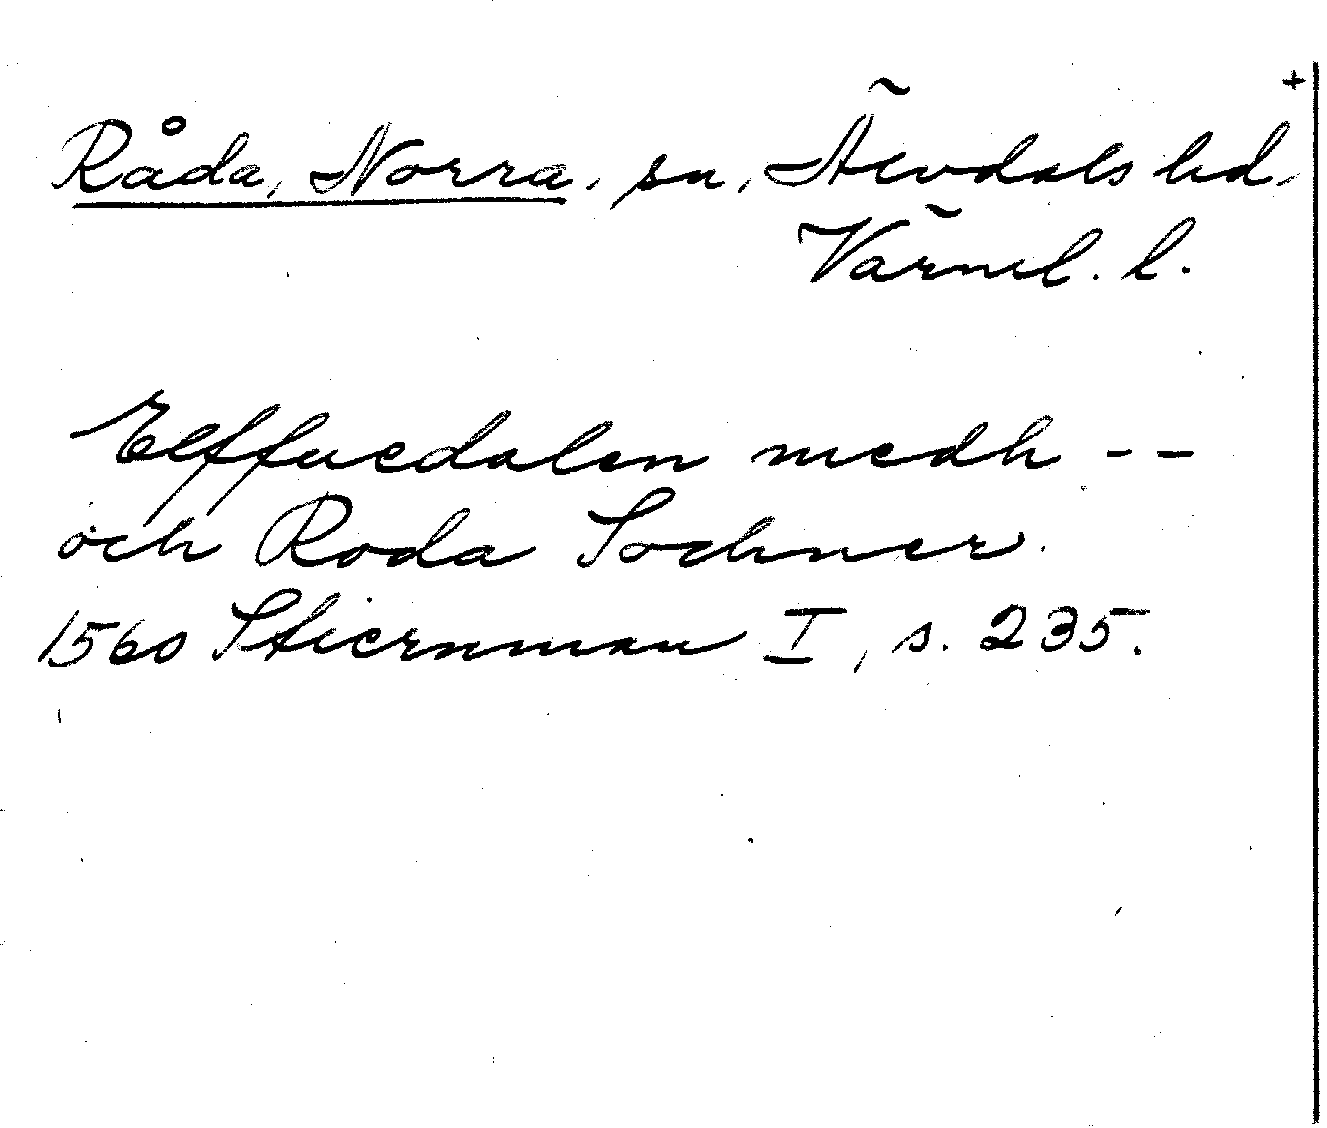 +
Råda, Norra, sn, Älvdals hd,
Värml. l.
Elffuedalen medh --
och Roda Sochner.
1560 Stiernman I, s. 235.